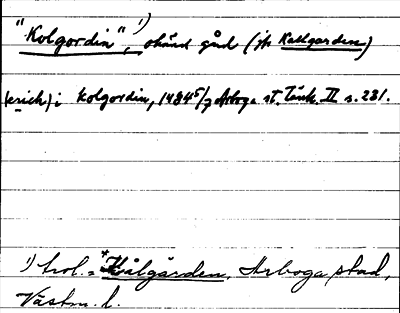 "Kolgordin",¹⁾ okänd gård (jfr Kallgarden)
(erich) i kolgordin, 1484 5/7 Arboga st. Tänk. II s. 281.
¹⁾ trol. = *Kålgården, Arboga stad,
Västm. l.